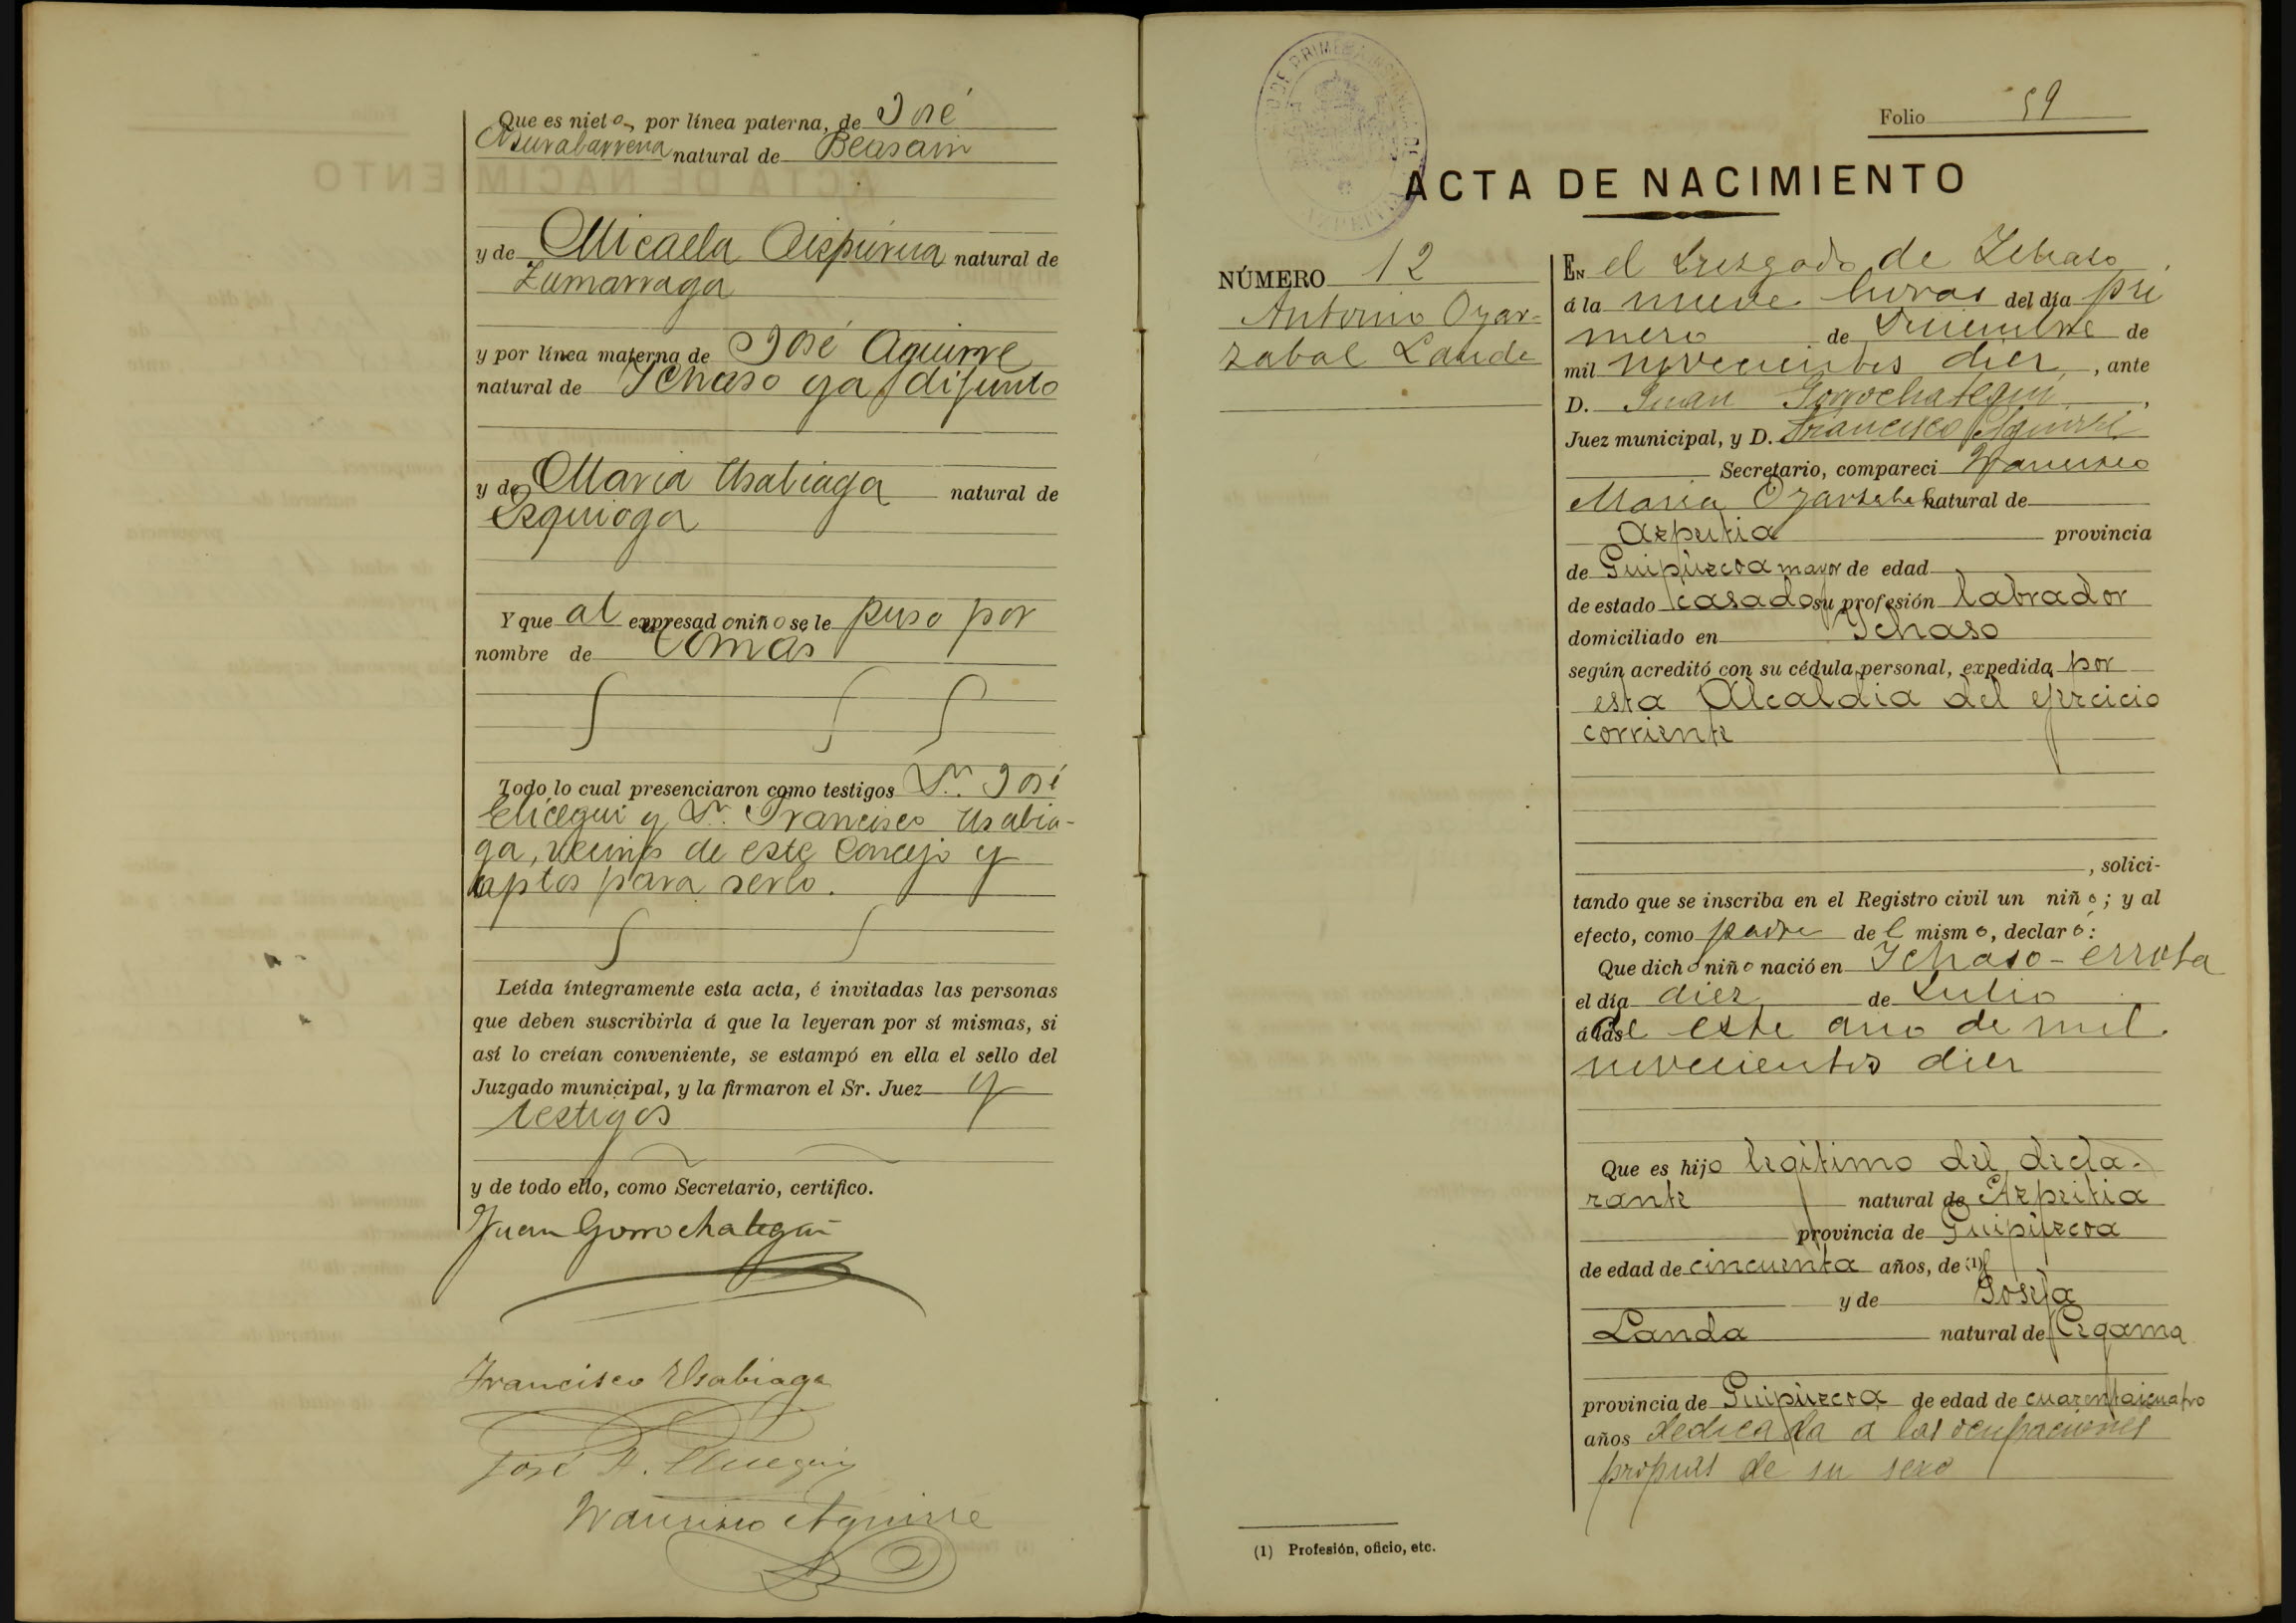 Que es nieto, por línea paterna, de José
natural de Beasain
y de Micaela Aizpurua natural de
Zumarraga
y por línea materna de José Aguirre
natural de Ichaso ya difunto
y de Maria Usabiaga natural de
Ezquioga
Y que al expresado niño se le puso por
nombre de Tomás
Todo lo cual presenciaron como testigos Dn. José
Elicegui y Dn. Francisco Usabia-
ga, vecinos de este Concejo y
aptos para serlo.
Leída íntegramente esta acta, é invitadas las personas
que deben suscribirla á que la leyeran por sí mismas, si
así lo creían conveniente, se estampó en ella el sello del
Juzgado municipal, y la firmaron el Sr. Juez y
testigos
y de todo ello, como Secretario, certifico.
Juan Gorrochategui
Francisco Usabiaga
José A. Elicegui
Francisco Aguirre
Folio 59
ACTA DE NACIMIENTO
NÚMERO 12
Antonio Oyar-
zabal Landa
En el Juzgado de Ichaso
á la nueve horas del día pri
mero de Diciembre de
mil novecientos diez, ante
D. Juan Gorrochategui,
Juez municipal, y D. Francisco Aguirre
Secretario, compareci Francisco
Maria Oyarzabal natural de
Azpeitia provincia
de Guipúzcoa mayor de edad
de estado casado su profesión labrador
domiciliado en Ichaso
según acreditó con su cédula personal, expedida por
esta Alcaldia del ejercicio
corriente
, solici-
tando que se inscriba en el Registro civil un niño; y al
efecto, como padre del mismo, declaró:
Que dicho niño nació en Ichaso-errota
el día diez de Julio
á las de este año de mil
novecientos diez
Que es hijo legitimo del decla-
rante natural de Azpeitia
provincia de Guipúzcoa
de edad de cincuenta años, de (1)
y de Josefa
Landa natural de Cegama
provincia de Guipúzcoa de edad de cuarentaicuatro
años dedicada a las ocupaciones
propias de su sexo
(1) Profesión, oficio, etc.